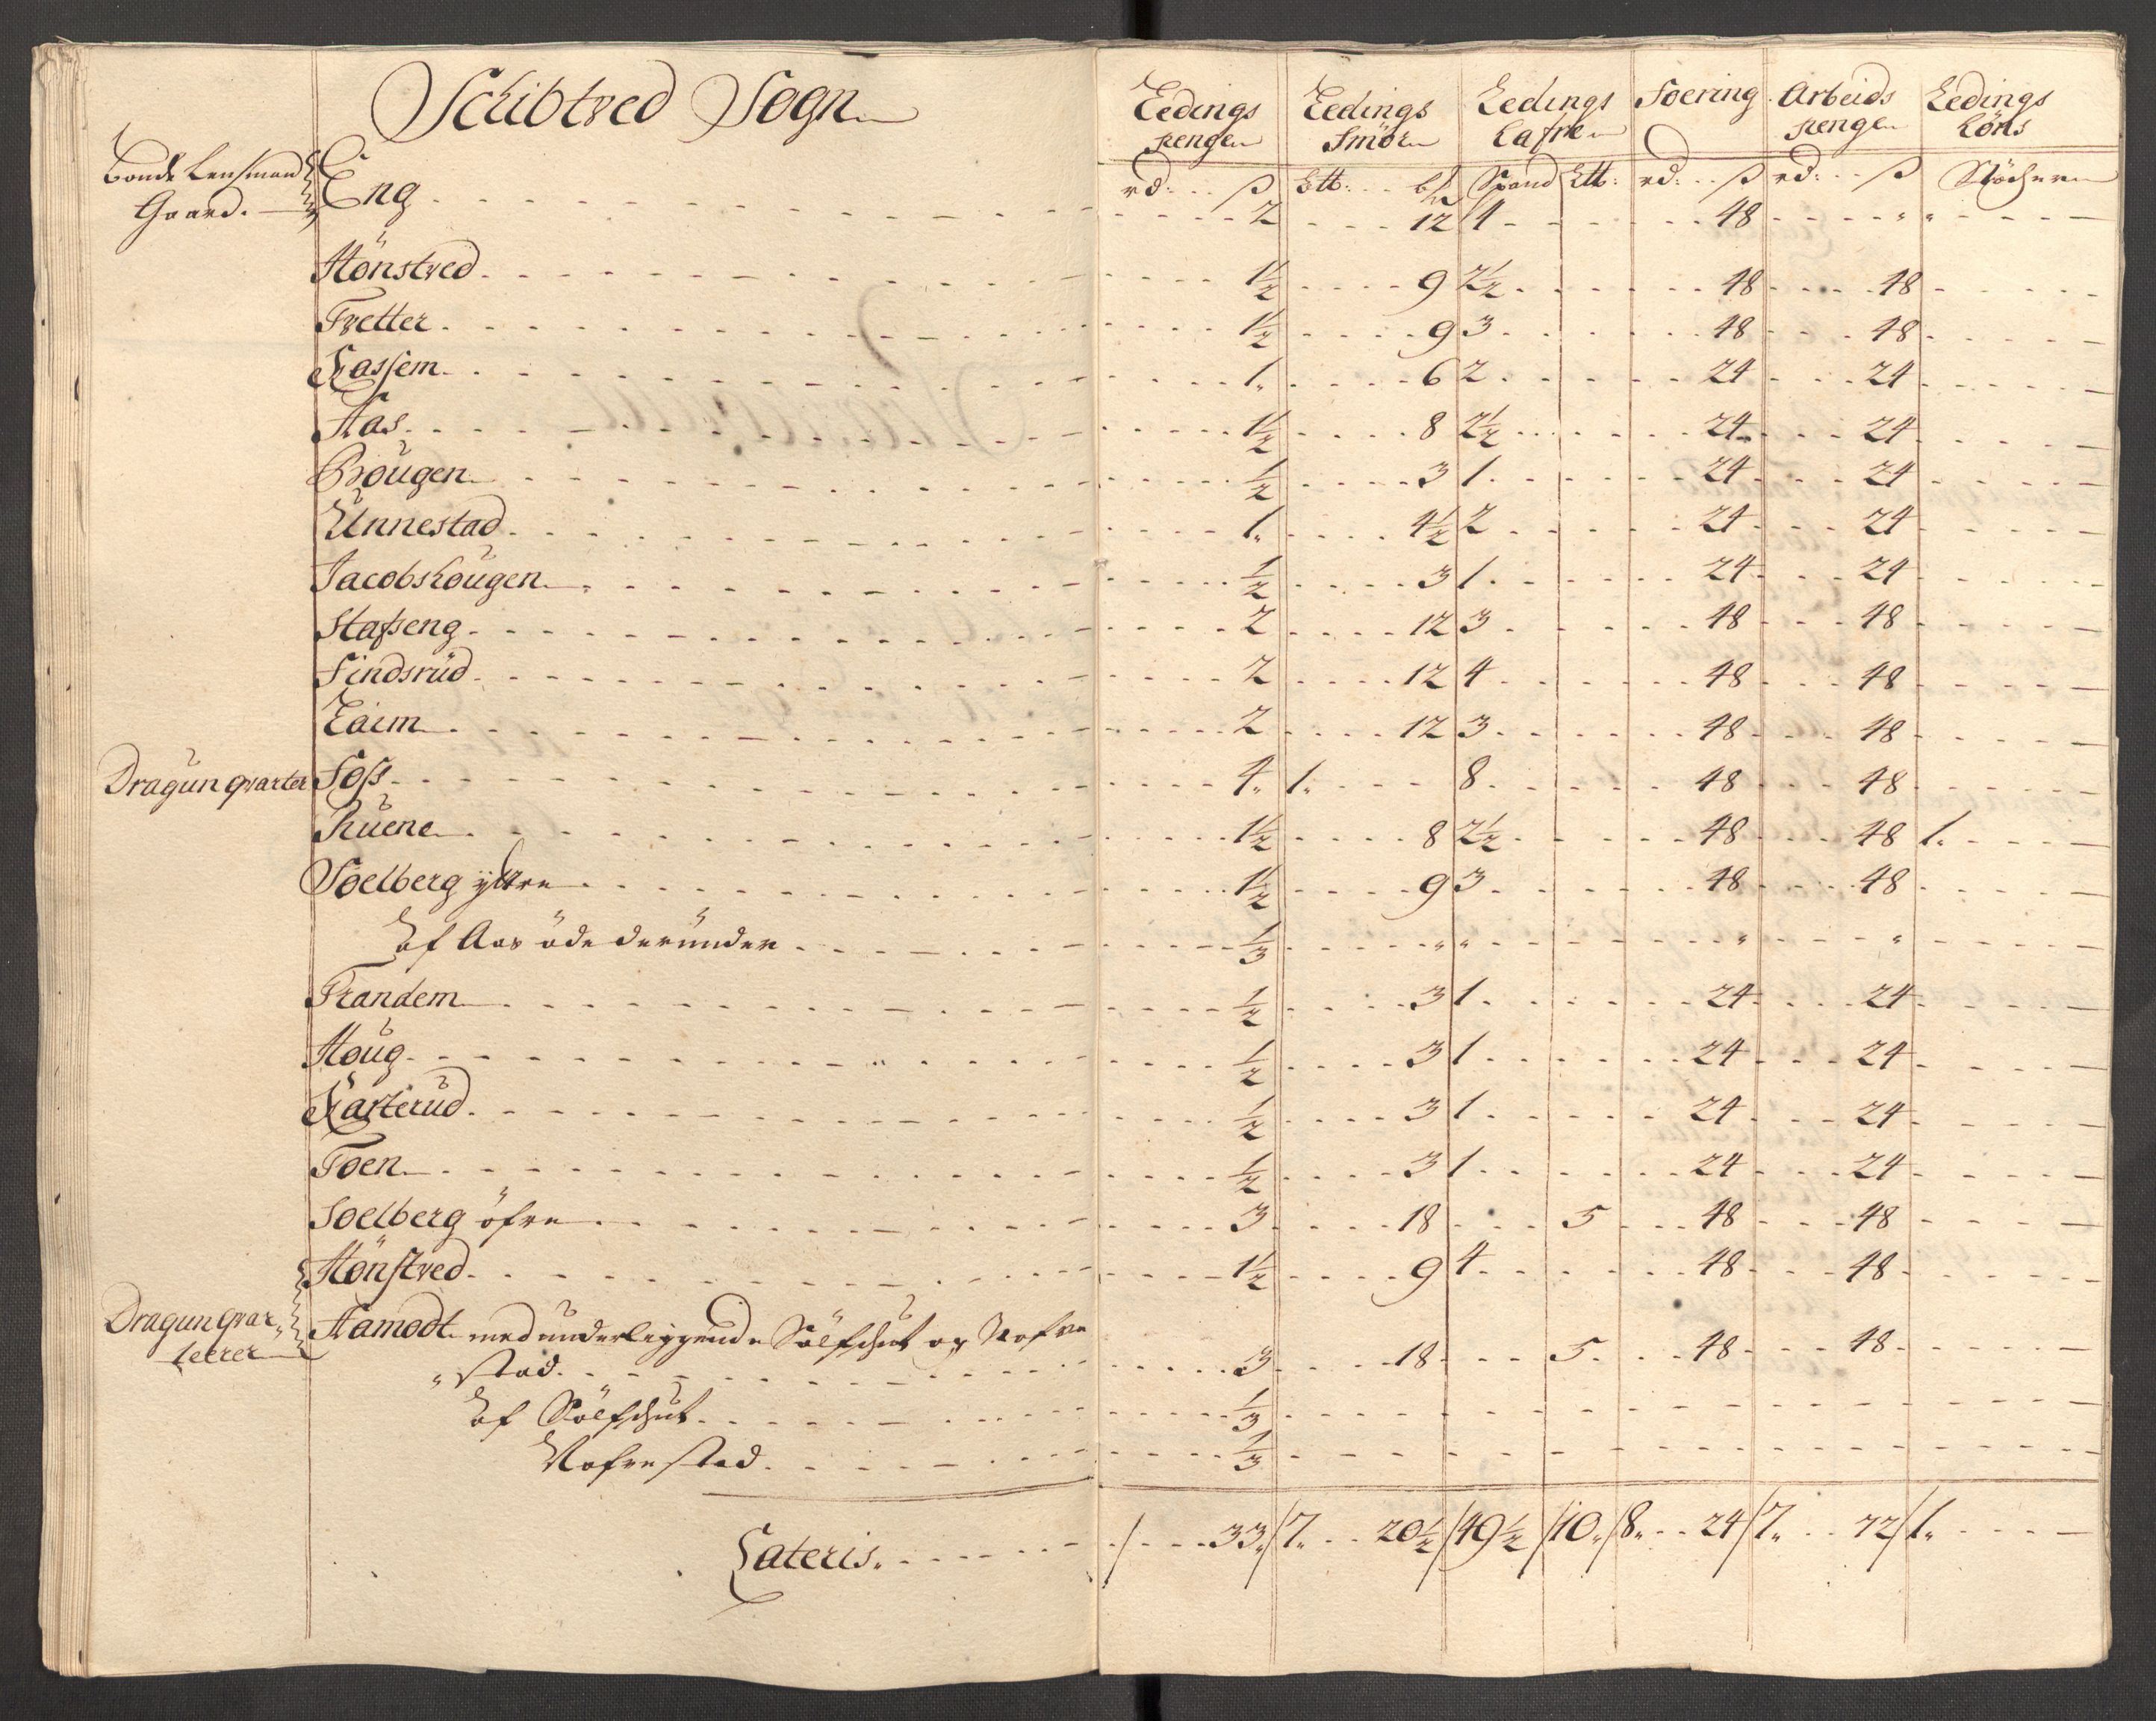 Schibtved Sogn
Ledings pengen | Ledings Smör | Ledings Hafre | Foering | Arbeids penge | Ledings höns
rd: ß | Ltt: | Spand Ltt: | rd: ß | rd: ß | Stöcher
Bonde Lensmand Gaard. Eng 2 12 4 48 " "
Hönstved 1½ 9 2½ 48 48
Tvetter 1½ 9 3 48 48
Kassem 1. 6 2 24 24
Aas 1½ 8 2½ 24 24
Hougen ½ 3 1 24 24
Unnestad 1. 4½ 2 24 24
Jacobshougen ½ 3 1 24 24
Stafseng 2 12 3 48 48
Findsrud 2 12 4 48 48
Haim 2 12 3 48 48
Dragun qvarter Foss 4. 1. 8 48 48
Ruene 1½ 8 2½ 48 48 1.
Soelberg yttre 1½ 9 3 48 48
Af Aas öde derunder ⅓ " " " "
Trandem ½ 3 1 24 24
Houg ½ 3 1 24 24
Karterud ½ 3 1 24 24
Toen ½ 3 1 24 24
Soelberg öfre 3 18 5 48 48
Hönstved 1½ 9 4 48 48
Dragun qvar- Aamodt med underliggende Sölfschut og Nafre
teerer "stad 3 18 5 48 48
Af Sölfschut ⅓
Nafrestad ⅓
Lateris. / 33. / 7. 20½ / 49½ / 10. / 8. 24 / 7. 72 / 1.